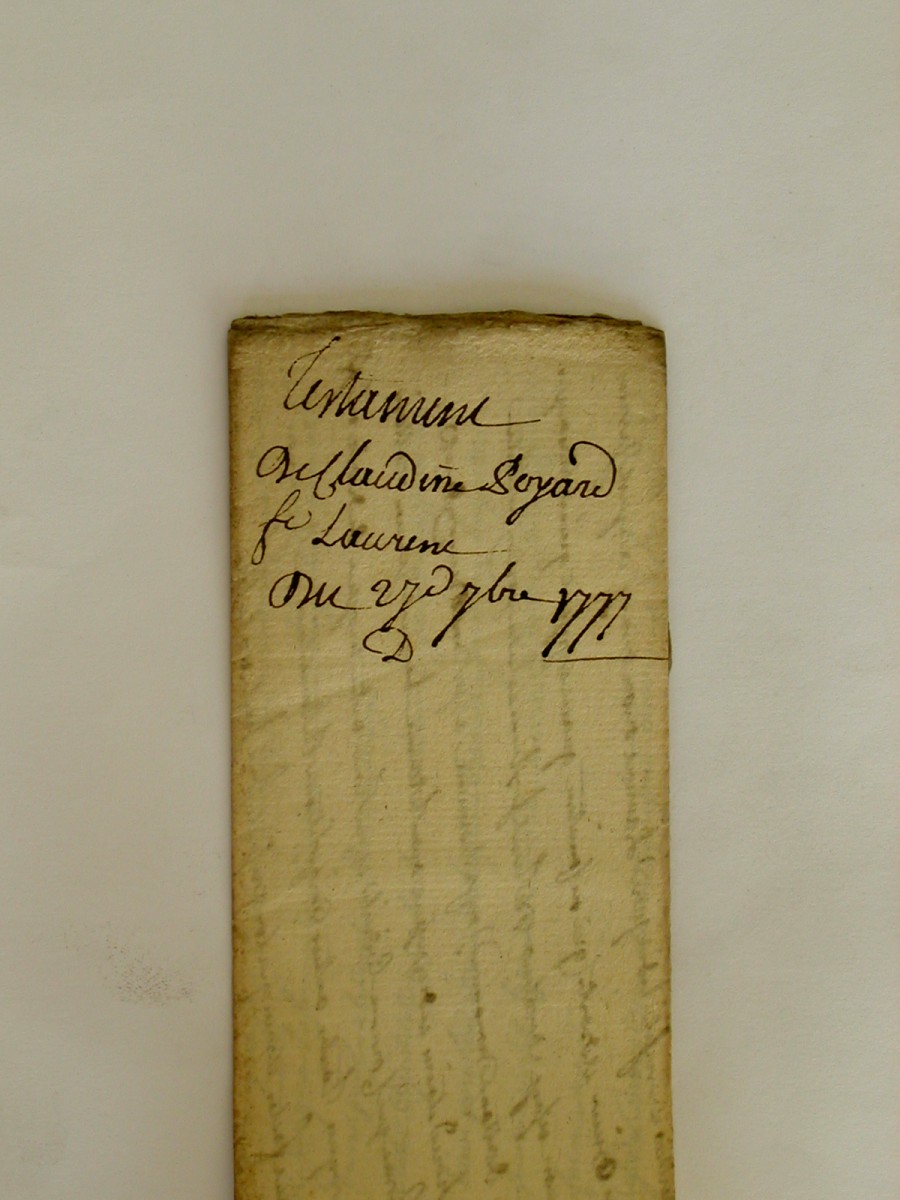 Testament
De Claudine Soyard
fe Laurent
Du 27d 7bre 1777
D